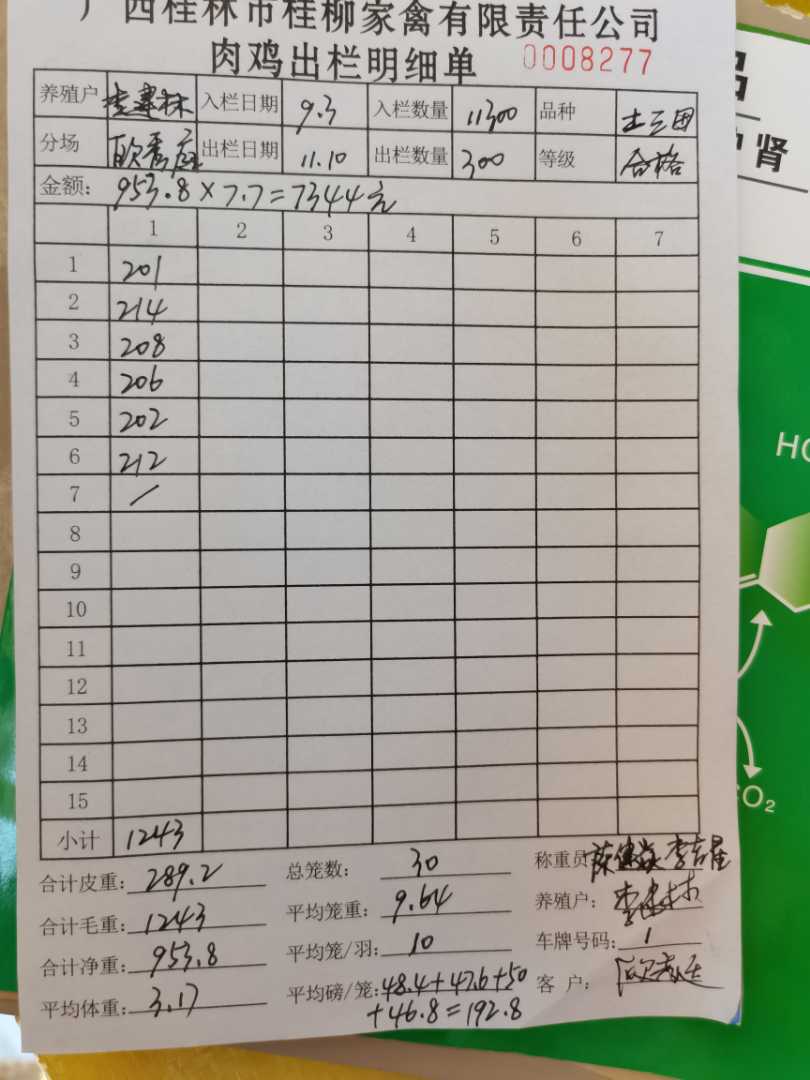 广西桂林市桂柳家禽有限责任公司
肉鸡出栏明细单 0008277
养殖户 李建林 入栏日期 9.3 入栏数量 11300 品种 土三团
分场 出栏日期 11.10 出栏数量 300 等级 合格
金额: 953.8×7.7=7344元
1 2 3 4 5 6 7
1 201
2 214
3 208
4 206
5 202
6 212
7 /
8
9
10
11
12
13
14
15
小计 1243
合计皮重: 289.2 总笼数: 30 称重员
合计毛重: 1243 平均笼重: 9.64 养殖户: 李建林
合计净重: 953.8 平均笼/羽: 10 车牌号码: 1
平均体重: 3.17 平均磅/笼: 48.4+47.6+50 客 户:
+46.8=192.8
品
肾
HO
CO₂